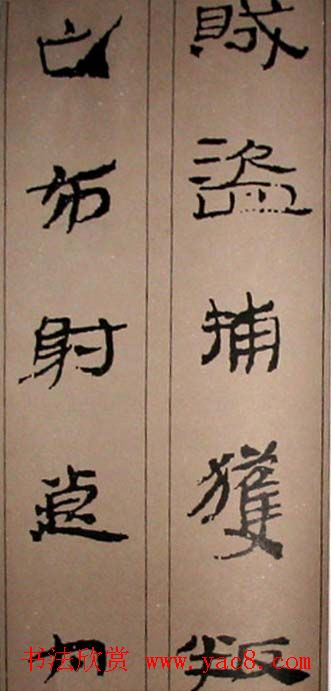 賊盜捕獲叛
亡布射遼丸
书法欣赏 www.yac8.com